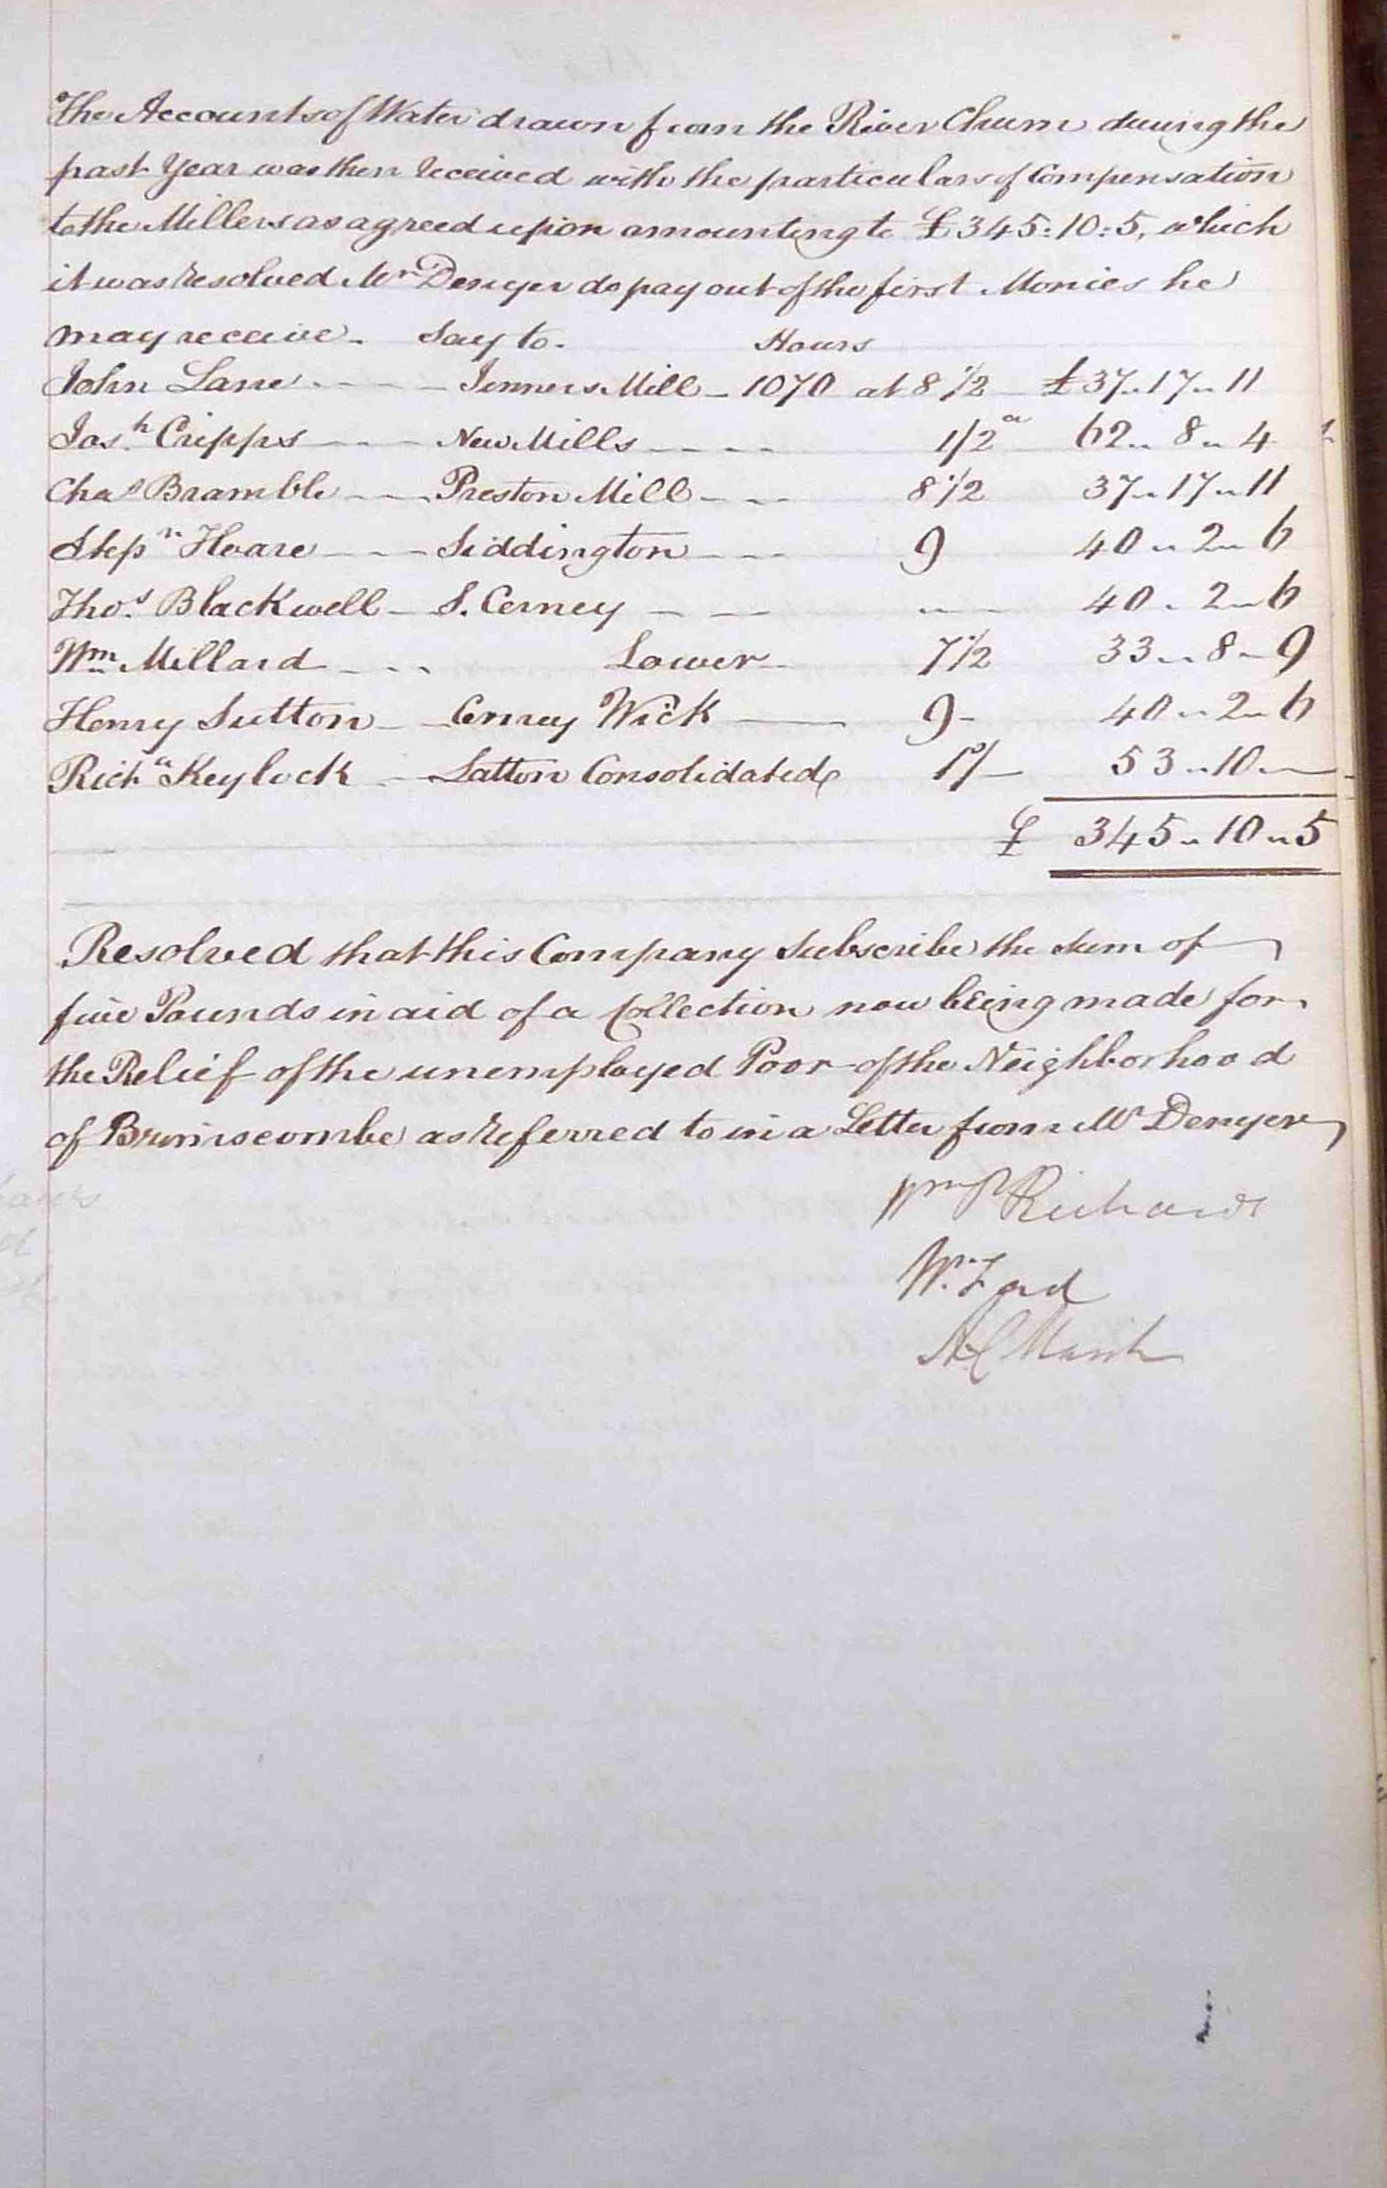 The Accounts of Water drawn from the River Churn during the
past Year was then received with the particulars of Compensation
to the Millers as agreed upon amounting to £345:10:5, which
it was resolved Mr Denyer do pay out of the first Monies he
may receive - Say to - Hours
John Lane - - - - Jenners Mill - 1070 at 8 1/2 £37 " 17 " 11
Josh Cripps - - - New Mills - - - - 1/2 62 " 8 " 4
Chas Bramble - - - Preston Mill - - - 8 1/2 37 " 17 " 11
Stepn Hoare - - - Siddington - - - 9 40 " 2 " 6
Thos Blackwell - S. Cerney - - - " - 40 " 2 " 6
Wm Millard - - - Lower - 7 1/2 33 " 8 " 9
Henry Sutton - Cerney Wick - 9 - 40 " 2 " 6
Richd Keylock - Latton Consolidated 1/- 53 " 10 " -
£ 345 " 10 " 5
Resolved that this Company Subscribe the Sum of
five Pounds in aid of a Collection now being made for
the Relief of the unemployed Poor of the Neighborhood
of Brimscombe as referred to in a Letter from Mr Denyer
Wm P Richards
Wm Ford